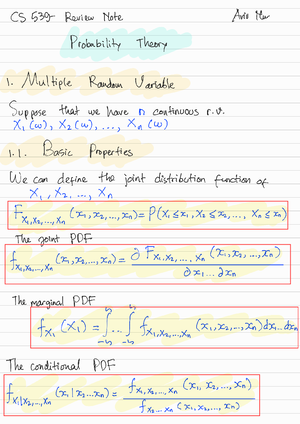 CS 539- Review Note
Probability Theory
1. Multiple Random Variable
Suppose that we have n continuous r.v.
X₁(ω), X₂(ω), ..., Xₙ(ω)
1.1. Basic Properties
We can define the joint distribution function of
X₁, X₂, ..., Xₙ
F_{X₁,X₂,...,Xₙ}(x₁,x₂,...,xₙ) = P(X₁≤x₁, X₂≤x₂, ..., Xₙ≤xₙ)
The joint PDF
f_{X₁,X₂,...,Xₙ}(x₁,x₂,...,xₙ) = ∂F_{X₁,X₂,...,Xₙ}(x₁,x₂,...,xₙ) / ∂x₁...∂xₙ
The marginal PDF
f_{X₁}(X₁) = ∫...∫ f_{X₁,X₂,...,Xₙ}(x₁,x₂,...,xₙ)dx₁..dxₙ
The conditional PDF
f_{X₁|X₂,...,Xₙ}(x₁|x₂...xₙ) = f_{X₁,X₂,...,Xₙ}(x₁,x₂,...,xₙ) / f_{X₂...Xₙ}(x₁,x₂,...,xₙ)